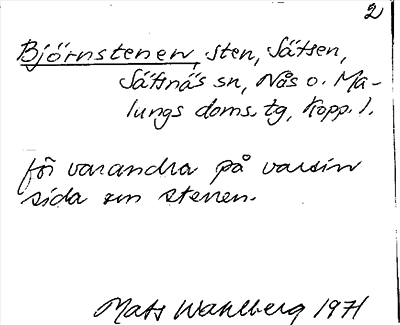 2
Björnstenen, sten, Sätsen,
Säfsnäs sn, Nås o. Ma-
lungs doms. tg, Kopp. l.
för varandra på varsin
sida om stenen.
Mats Wahlberg 1971